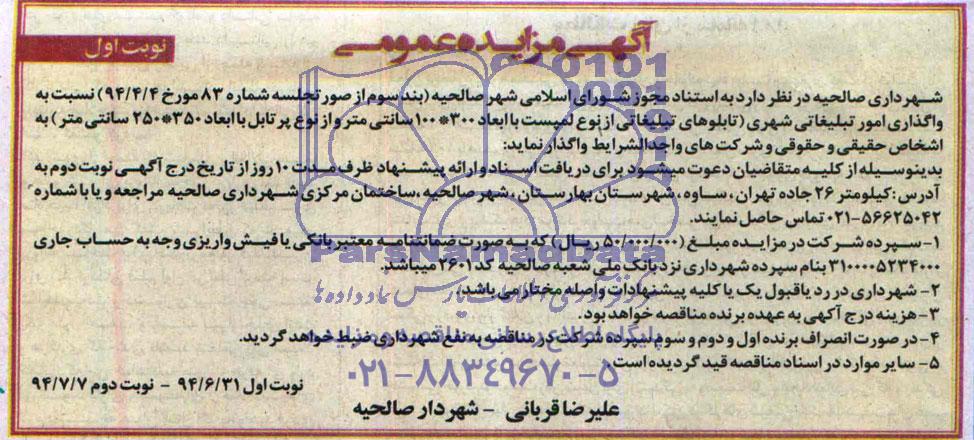 آگهی مزایده عمومی
نوبت اول
شهرداری صالحیه در نظر دارد به استناد مجوز شورای اسلامی شهر صالحیه (بند سوم از صورتجلسه شماره ۸۳ مورخ ۹۴/۴/۴) نسبت به
واگذاری امور تبلیغاتی شهری (تابلوهای تبلیغاتی از نوع لمپست با ابعاد ۳۰۰*۱۰۰ سانتی متر و از نوع پرتابل با ابعاد ۳۵۰*۲۵۰ سانتی متر) به
اشخاص حقیقی و حقوقی و شرکت های واجدالشرایط واگذار نماید:
بدینوسیله از کلیه متقاضیان دعوت میشود برای دریافت اسناد و ارائه پیشنهاد ظرف مدت ۱۰ روز از تاریخ درج آگهی نوبت دوم به
آدرس: کیلومتر ۲۶ جاده تهران، ساوه، شهرستان بهارستان، شهر صالحیه، ساختمان مرکزی شهرداری صالحیه مراجعه و یا با شماره
۰۲۱-۵۶۶۲۵۰۴۲ تماس حاصل نمایند.
۱- سپرده شرکت در مزایده مبلغ (۵۰/۰۰۰/۰۰۰ ریال) که به صورت ضمانتنامه معتبر بانکی یا فیش واریزی وجه به حساب جاری
۳۱۰۰۰۰۵۲۳۴۰۰۰ بنام سپرده شهرداری نزد بانک ملی شعبه صالحیه کد ۲۶۰۱ میباشد.
۲- شهرداری در رد یا قبول یک یا کلیه پیشنهادات واصله مختار می باشد.
۳- هزینه درج آگهی به عهده برنده مناقصه خواهد بود.
۴- در صورت انصراف برنده اول و دوم و سوم سپرده شرکت در مناقصه به نفع شهرداری ضبط خواهد گردید.
۵- سایر موارد در اسناد مناقصه قید گردیده است.
نوبت اول ۹۴/۶/۳۱ - نوبت دوم ۹۴/۷/۷
علیرضا قربانی - شهردار صالحیه
ParsNamadData
پایگاه اطلاع رسانی مناقصه و مزایده
۰۲۱-۸۸۳۴۹۶۷۰-۵